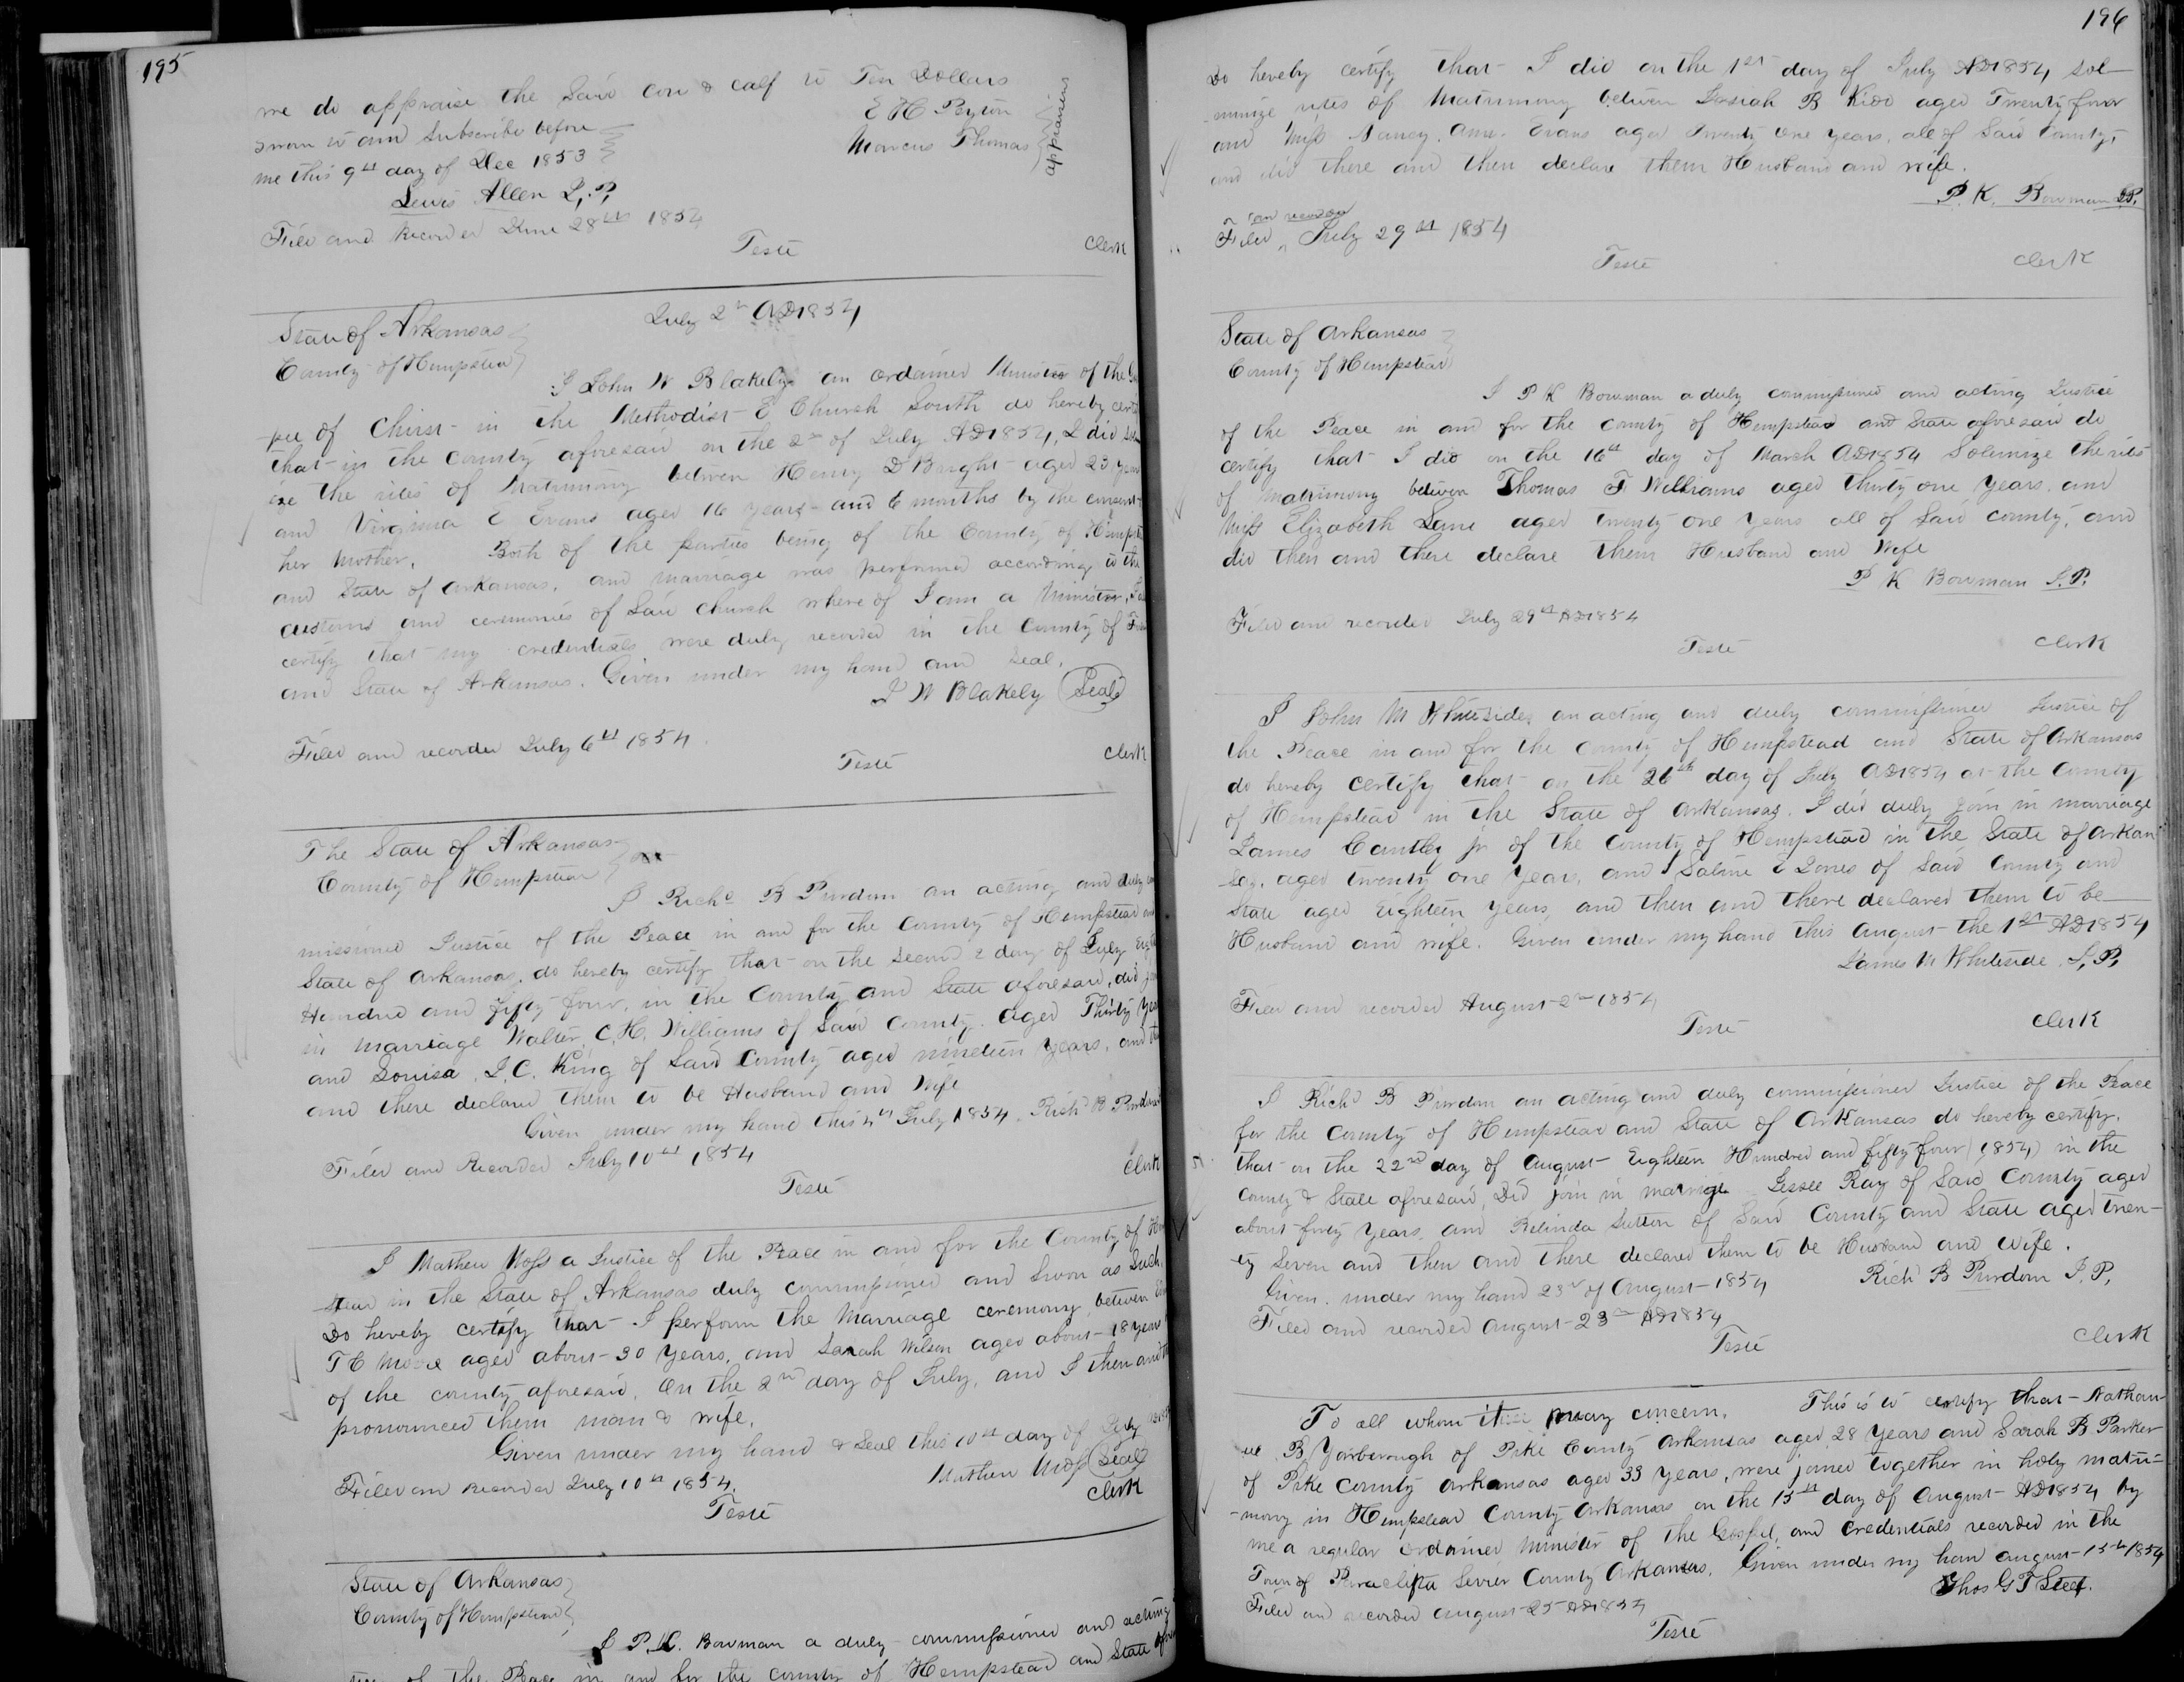 195
we do appraise the Said cow & calf to Ten Dollars
E H Peyton
Marcus Thomas
appraisers
sworn to and Subscribe before
me this 9th day of Dec 1853
Lewis Allen J.P.
Filed and Recorded June 28th 1854
Teste Clerk
July 2nd AD1854
State of Arkansas
County of Hempstead
I John W Blakely an ordained Minister of the
pel of Christ in the Methodist E Church South do hereby
that in the County aforesaid on the 2nd of July AD1854, I did
ize the rites of Matrimony between Henry D Bright aged 23 years
and Virginia E Evans aged 16 years and 6 months by the consent
her Mother. Both of the parties being of the County of
and State of Arkansas, and marriage was performed according to the
customs and ceremonies of Said Church where of I am a Minister, I
certify that my credentials were duly recorded in the County of
and State of Arkansas. Given under my hand and Seal.
J W Blakely (Seal)
Filed and recorded July 6th 1854
Teste Clerk
The State of Arkansas
County of Hempstead
I Richd B Purdom an acting and duly
missioned Justice of the Peace in and for the County of Hempstead and
State of Arkansas, do hereby certify that on the Second 2 day of July
Hundred and fifty four, in the County and State aforesaid, did
in marriage Walter C. H. Williams of Said County aged Thirty Years
and Louisa J. C. King of Said County aged nineteen Years, and
and there declared them to be Husband and Wife
Given under my hand this 4th July 1854. Richd B Purdom
Filed and Recorded July 10th 1854
Teste Clerk
I Mathew Moss a Justice of the Peace in and for the County of
stead in the State of Arkansas duly commissioned and Sworn as Such.
Do hereby certify that I perform the Marriage ceremony between
T E Moore aged about 30 years, and Sarah Wilson aged about 18 years
of the county aforesaid, On the 2nd day of July, and I then and
pronounced them man & wife.
Given under my hand & Seal this 10th day of July 1854
Mathew Moss (Seal)
Filed and Recorded July 10th 1854.
Clerk
Teste
State of Arkansas
County of Hempstead
I P. K. Bowman a duly commissioned and acting
of the Peace in and for the County of Hempstead and State
196
Do hereby certify that I did on the 1st day of July AD1854, sol-
-emnize rites of Matrimony between Josiah B Kidd aged Twenty four
and Miss Nancy Ann Evans aged Twenty One years, all of Said County,
and did there and then declare them Husband and wife.
P. K. Bowman J.P.
Filed July 29th 1854
Teste Clerk
State of Arkansas
County of Hempstead
I P K Bowman a duly commissioned and acting Justice
of the Peace in and for the County of Hempstead and State aforesaid do
certify that I did on the 16th day of March AD1854 Solemnize the rites
of Matrimony between Thomas F Williams aged thirty one years and
Miss Elizabeth Lane aged twenty one years all of Said county, and
did then and there declare them Husband and Wife
P K Bowman J.P.
Filed and recorded July 29th AD1854
Teste Clerk
I John M Whitesides an acting and duly commissioned Justice of
the Peace in and for the County of Hempstead and State of Arkansas
do hereby certify that on the 26th day of July AD1854 at the County
of Hempstead in the State of Arkansas. I did duly join in marriage
James Cantley jr of the County of Hempstead in the State of Arkan
-sas, aged twenty one Years, and Saline E Jones of Said County and
State aged Eighteen Years, and then and there declared them to be
Husband and wife. Given under my hand this August the 1st AD1854
James M Whiteside J.P.
Filed and recorded August 2nd 1854
Teste Clerk
I Richd B Purdom an acting and duly commissioned Justice of the Peace
for the County of Hempstead and State of Arkansas do hereby certify,
that on the 22nd day of August Eighteen Hundred and fifty four (1854) in the
County & State aforesaid, Did join in marriage Jessee Ray of Said County aged
about forty Years, and Belinda Sutton of Said County and State aged twen-
ty Seven and then and there declared them to be Husband and Wife.
Given under my hand 23d of August 1854 Richd B Purdom J.P.
Filed and recorded August 23rd AD1854
Teste Clerk
To all whom it may concern. This is to certify that Nathan-
iel B Yarborough of Pike County Arkansas aged 28 years and Sarah B Parker
of Pike County Arkansas aged 33 years, were joined together in holy matri-
-mony in Hempstead County Arkansas on the 15th day of August AD1854 by
me a regular Ordained Minister of the Gospel, and Credentials recorded in the
Town of Paraclifta Sevier County Arkansas. Given under my hand August 15th 1854
Thos G T Steel.
Filed and recorded August 25 AD1854
Teste